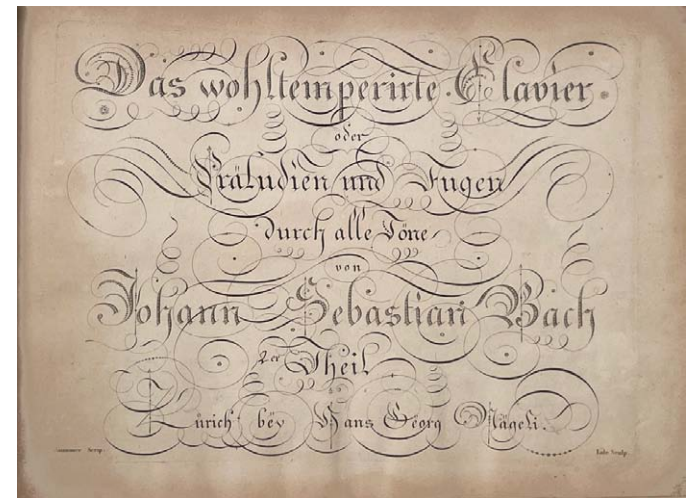 Das wohltemperirte Clavier.
oder
Präludien und Fugen
durch alle Töne
von
Johann Sebastian Bach
2er Theil
Zürich bëy Hans Georg Nägeli.